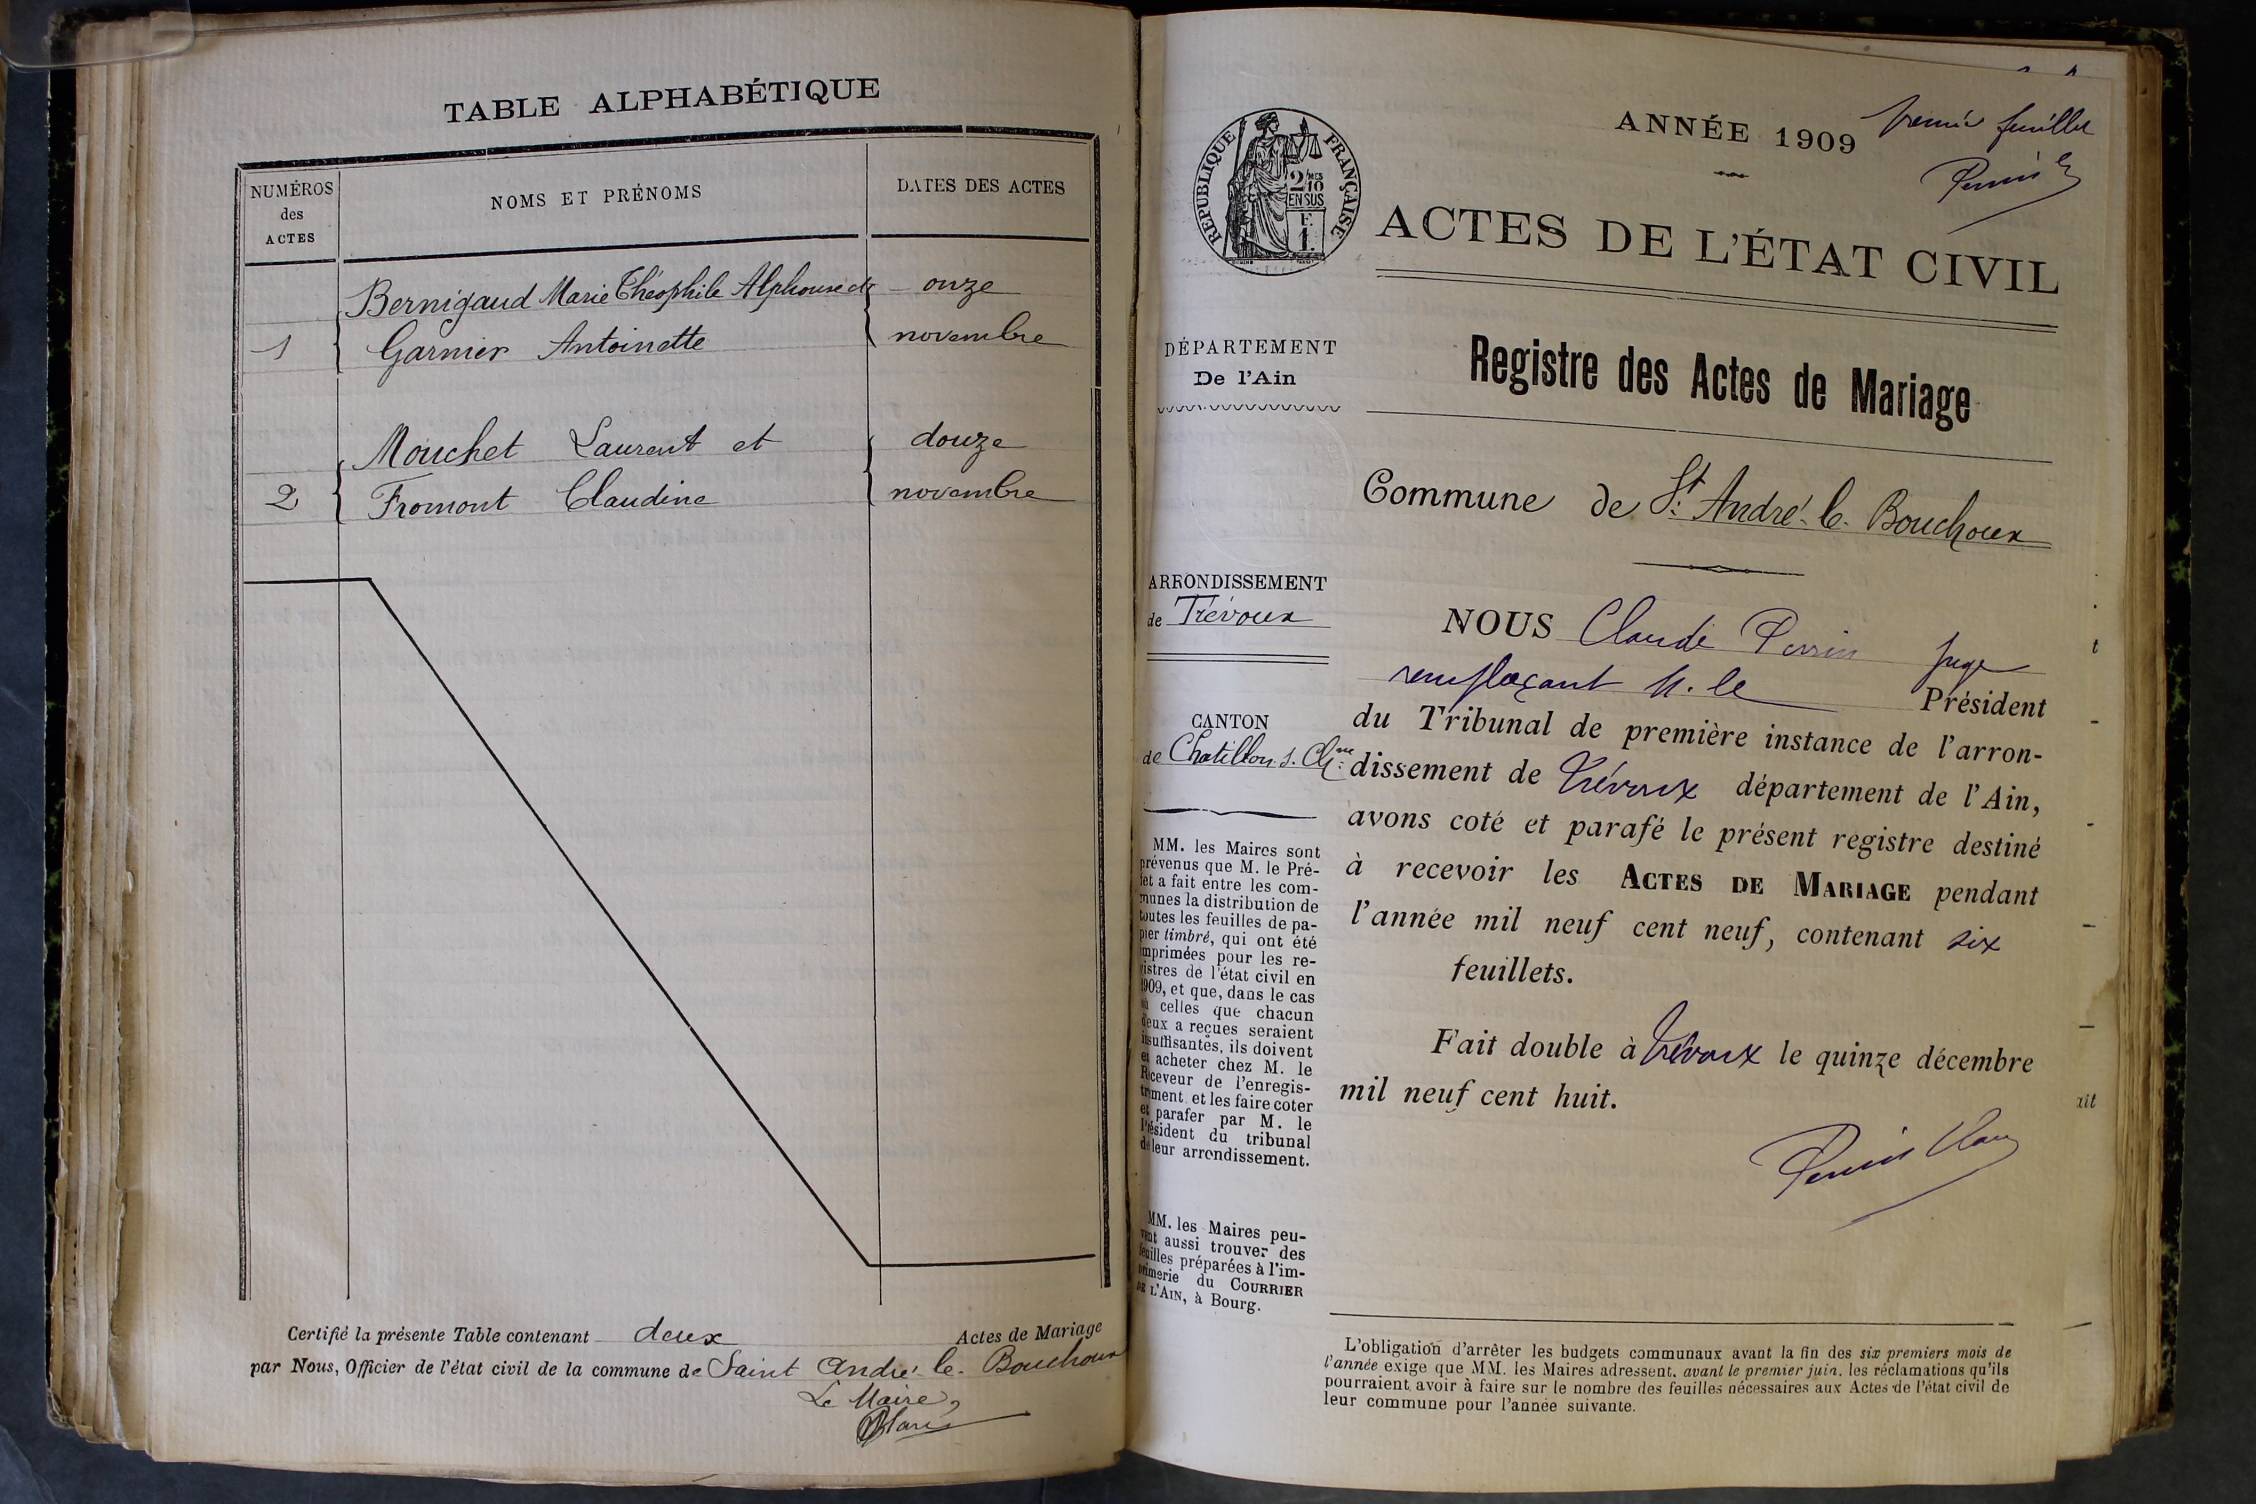 TABLE ALPHABÉTIQUE
NUMÉROS
des
ACTES
NOMS ET PRÉNOMS
DATES DES ACTES
Bernigaud Marie Théophile Alphonse et
onze
1
Garnier Antoinette
novembre
Mouchet Laurent et
douze
2
Fromont Claudine
novembre
Certifié la présente Table contenant deux Actes de Mariage
par Nous, Officier de l'état civil de la commune de Saint André-le-Bouchoux
Le Maire,
ANNÉE 1909
premier feuillet
RÉPUBLIQUE FRANÇAISE
2/10 MES
EN SUS
F.
1.
ACTES DE L'ÉTAT CIVIL
Registre des Actes de Mariage
Commune de St. André-le-Bouchoux
DÉPARTEMENT
De l'Ain
ARRONDISSEMENT
de Trévoux
CANTON
de Chatillon s. Chne
MM. les Maires sont
prévenus que M. le Pré-
fet a fait entre les com-
munes la distribution de
toutes les feuilles de pa-
pier timbré, qui ont été
imprimées pour les re-
gistres de l'état civil en
1909, et que, dans le cas
où celles que chacun
d'eux a reçues seraient
insuffisantes, ils doivent
en acheter chez M. le
Receveur de l'enregis-
trement et les faire coter
et parafer par M. le
Président du tribunal
de leur arrondissement.
MM. les Maires peu-
vent aussi trouver des
feuilles préparées à l'im-
primerie du COURRIER
DE L'AIN, à Bourg.
NOUS Claude Perrin juge
remplaçant M. le Président
du Tribunal de première instance de l'arron-
dissement de Trévoux département de l'Ain,
avons coté et parafé le présent registre destiné
à recevoir les ACTES DE MARIAGE pendant
l'année mil neuf cent neuf, contenant six
feuillets.
Fait double à Trévoux le quinze décembre
mil neuf cent huit.
L'obligation d'arrêter les budgets communaux avant la fin des six premiers mois de
l'année exige que MM. les Maires adressent, avant le premier juin, les réclamations qu'ils
pourraient avoir à faire sur le nombre des feuilles nécessaires aux Actes de l'état civil de
leur commune pour l'année suivante.